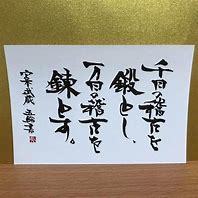 千日の稽古を
鍛とし、
万日の稽古を
錬とす。
宮本武蔵